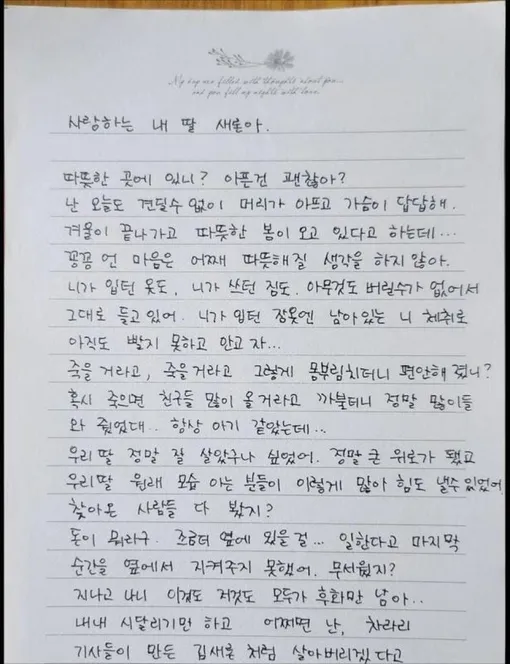 My day are filled with thoughts about you...
and you fill my nights with love.
사랑하는 내 딸 새론아.
따뜻한 곳에 있니? 아픈건 괜찮아?
난 오늘도 견딜수 없이 머리가 아프고 가슴이 답답해.
겨울이 끝나가고 따뜻한 봄이 오고 있다고 하는데...
꽁꽁 언 마음은 어째 따뜻해질 생각을 하지 않아.
니가 입던 옷도, 니가 쓰던 짐도. 아무것도 버릴수가 없어서
그대로 들고있어. 니가 입던 잠옷엔 남아있는 니 체취로
아직도 빨지 못하고 안고 자...
죽을 거라고, 죽을거라고 그렇게 몸부림치더니 편안해 졌니?
혹시 죽으면 친구들 많이 올거라고 까불더니 정말 많이들
와 줬었대.. 항상 아기 같았는데...
우리딸 정말 잘 살았구나 싶었어. 정말 큰 위로가 됐고
우리딸 원래 모습 아는 분들이 이렇게 많아 힘도 낼수있었어
찾아온 사람들 다 봤지?
돈이 뭐라구. 조금더 옆에 있을걸... 일한다고 마지막
순간을 옆에서 지켜주지 못했어. 무서웠지?
지나고 나니 이것도 저것도 모두가 후회만 남아..
내내 시달리기만 하고 어쩌면 난, 차라리
기사들이 만든 김새론 처럼 살아버리겠다고